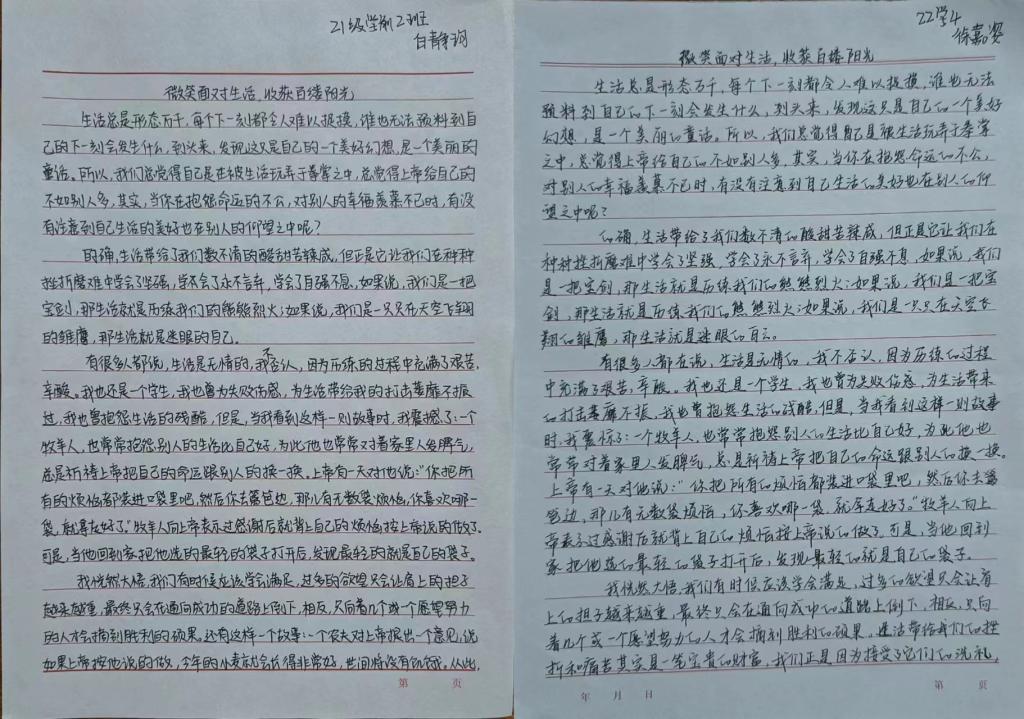 21级学前2班
白静珂
微笑面对生活,收获百缕阳光
生活总是形态万千,每个下一刻都令人难以捉摸,谁也无法预料到自
己的下一刻会发生什么,到头来,发现这只是自己的一个美好幻想,是一个美丽的
童话。所以,我们总觉得自己是在被生活玩弄于鼓掌之中,总觉得上帝给自己的
不如别人多,其实,当你在抱怨命运的不公,对别人的幸福羡慕不已时,有没
有注意到自己生活的美好也在别人的仰望之中呢?
的确,生活带给了我们数不清的酸甜苦辣咸,但正是它让我们在种种
挫折磨难中学会了坚强,学会了永不言弃,学会了自强不息,如果说,我们是一把
宝剑,那生活就是历练我们的熊熊烈火;如果说,我们是一只只在天空飞翔
的雏鹰,那生活就是迷眼的自己。
有很多人都说,生活是无情的,我不否认,因为历练的过程中充满了艰苦,
辛酸。我也还是个学生,我也曾为失败伤感,为生活带给我的打击萎靡不振
过,我也曾抱怨生活的残酷,但是,当我看到这样一则故事时,我震撼了:一个
牧羊人,也常常抱怨别人的生活比自己好,为此他也常常对着家里人发脾气,
总是祈祷上帝把自己的命运跟别人的换一换。上帝有一天对他说:“你把所
有的烦恼都装进口袋里吧,然后你去篱笆边,那儿有无数袋烦恼,你喜欢哪一
袋,就拿去好了。”牧羊人向上帝表示过感谢后就背上自己的烦恼按上帝说的做了。
可是,当他回到家把他选的最轻的袋子打开后,发现最轻的就是自己的袋子。
我恍然大悟,我们有时候应该学会满足,过多的欲望只会让肩上的担子
越来越重,最终只会在通向成功的道路上倒下,相反,只向着几个或一个愿望努力
的人才会摘到胜利的硕果。还有这样一个故事:一个农夫对上帝提出一个意见,说
如果上帝按他说的做,今年的小麦就会长得非常好,世间将没有饥饿。从此,
第 页
22学4
徐嘉姿
微笑面对生活,收获百缕阳光
生活总是形态万千,每个下一刻都令人难以捉摸,谁也无法
预料到自己的下一刻会发生什么,到头来,发现这只是自己的一个美好
幻想,是一个美丽的童话。所以,我们总觉得自己是被生活玩弄于鼓掌
之中,总觉得上帝给自己的不如别人多,其实,当你在抱怨命运的不公,
对别人的幸福羡慕不已时,有没有注意到自己生活的美好也在别人的仰
望之中呢?
的确,生活带给了我们数不清的酸甜苦辣咸,但正是它让我们在
种种挫折磨难中学会了坚强,学会了永不言弃,学会了自强不息,如果说,我们
是一把宝剑,那生活就是历练我们的熊熊烈火;如果说,我们是一把宝
剑,那生活就是历练我们的熊熊烈火;如果说,我们是一只只在天空飞
翔的雏鹰,那生活就是迷眼的白云。
有很多人都在说,生活是无情的,我不否认,因为历练的过程
中充满了艰苦,辛酸。我也还是一个学生,我也曾为失败伤感,为生活带来
的打击萎靡不振,我也曾抱怨生活的残酷,但是,当我看到这样一则故事
时,我震惊了:一个牧羊人,也常常抱怨别人的生活比自己好,为此他也
常常对着家里人发脾气,总是祈祷上帝把自己的命运跟别人的换一换。
上帝有一天对他说:“你把所有的烦恼都装进口袋里吧,然后你去篱
笆边,那儿有无数袋烦恼,你喜欢哪一袋,就拿走好了。”牧羊人向上
帝表示过感谢后就背上自己的烦恼按上帝说的做了。可是,当他回到
家把他选的最轻的袋子打开后,发现最轻的就是自己的袋子。
我恍然大悟,我们有时候应该学会满足,过多的欲望只会让肩
上的担子越来越重,最终只会在通向成功的道路上倒下,相反,只向
着几个或一个愿望努力的人才会摘到胜利的硕果。生活带给我们的挫
折和痛苦其实是一笔宝贵的财富,我们正是因为接受了它们的洗礼,
年 月 日
第 页